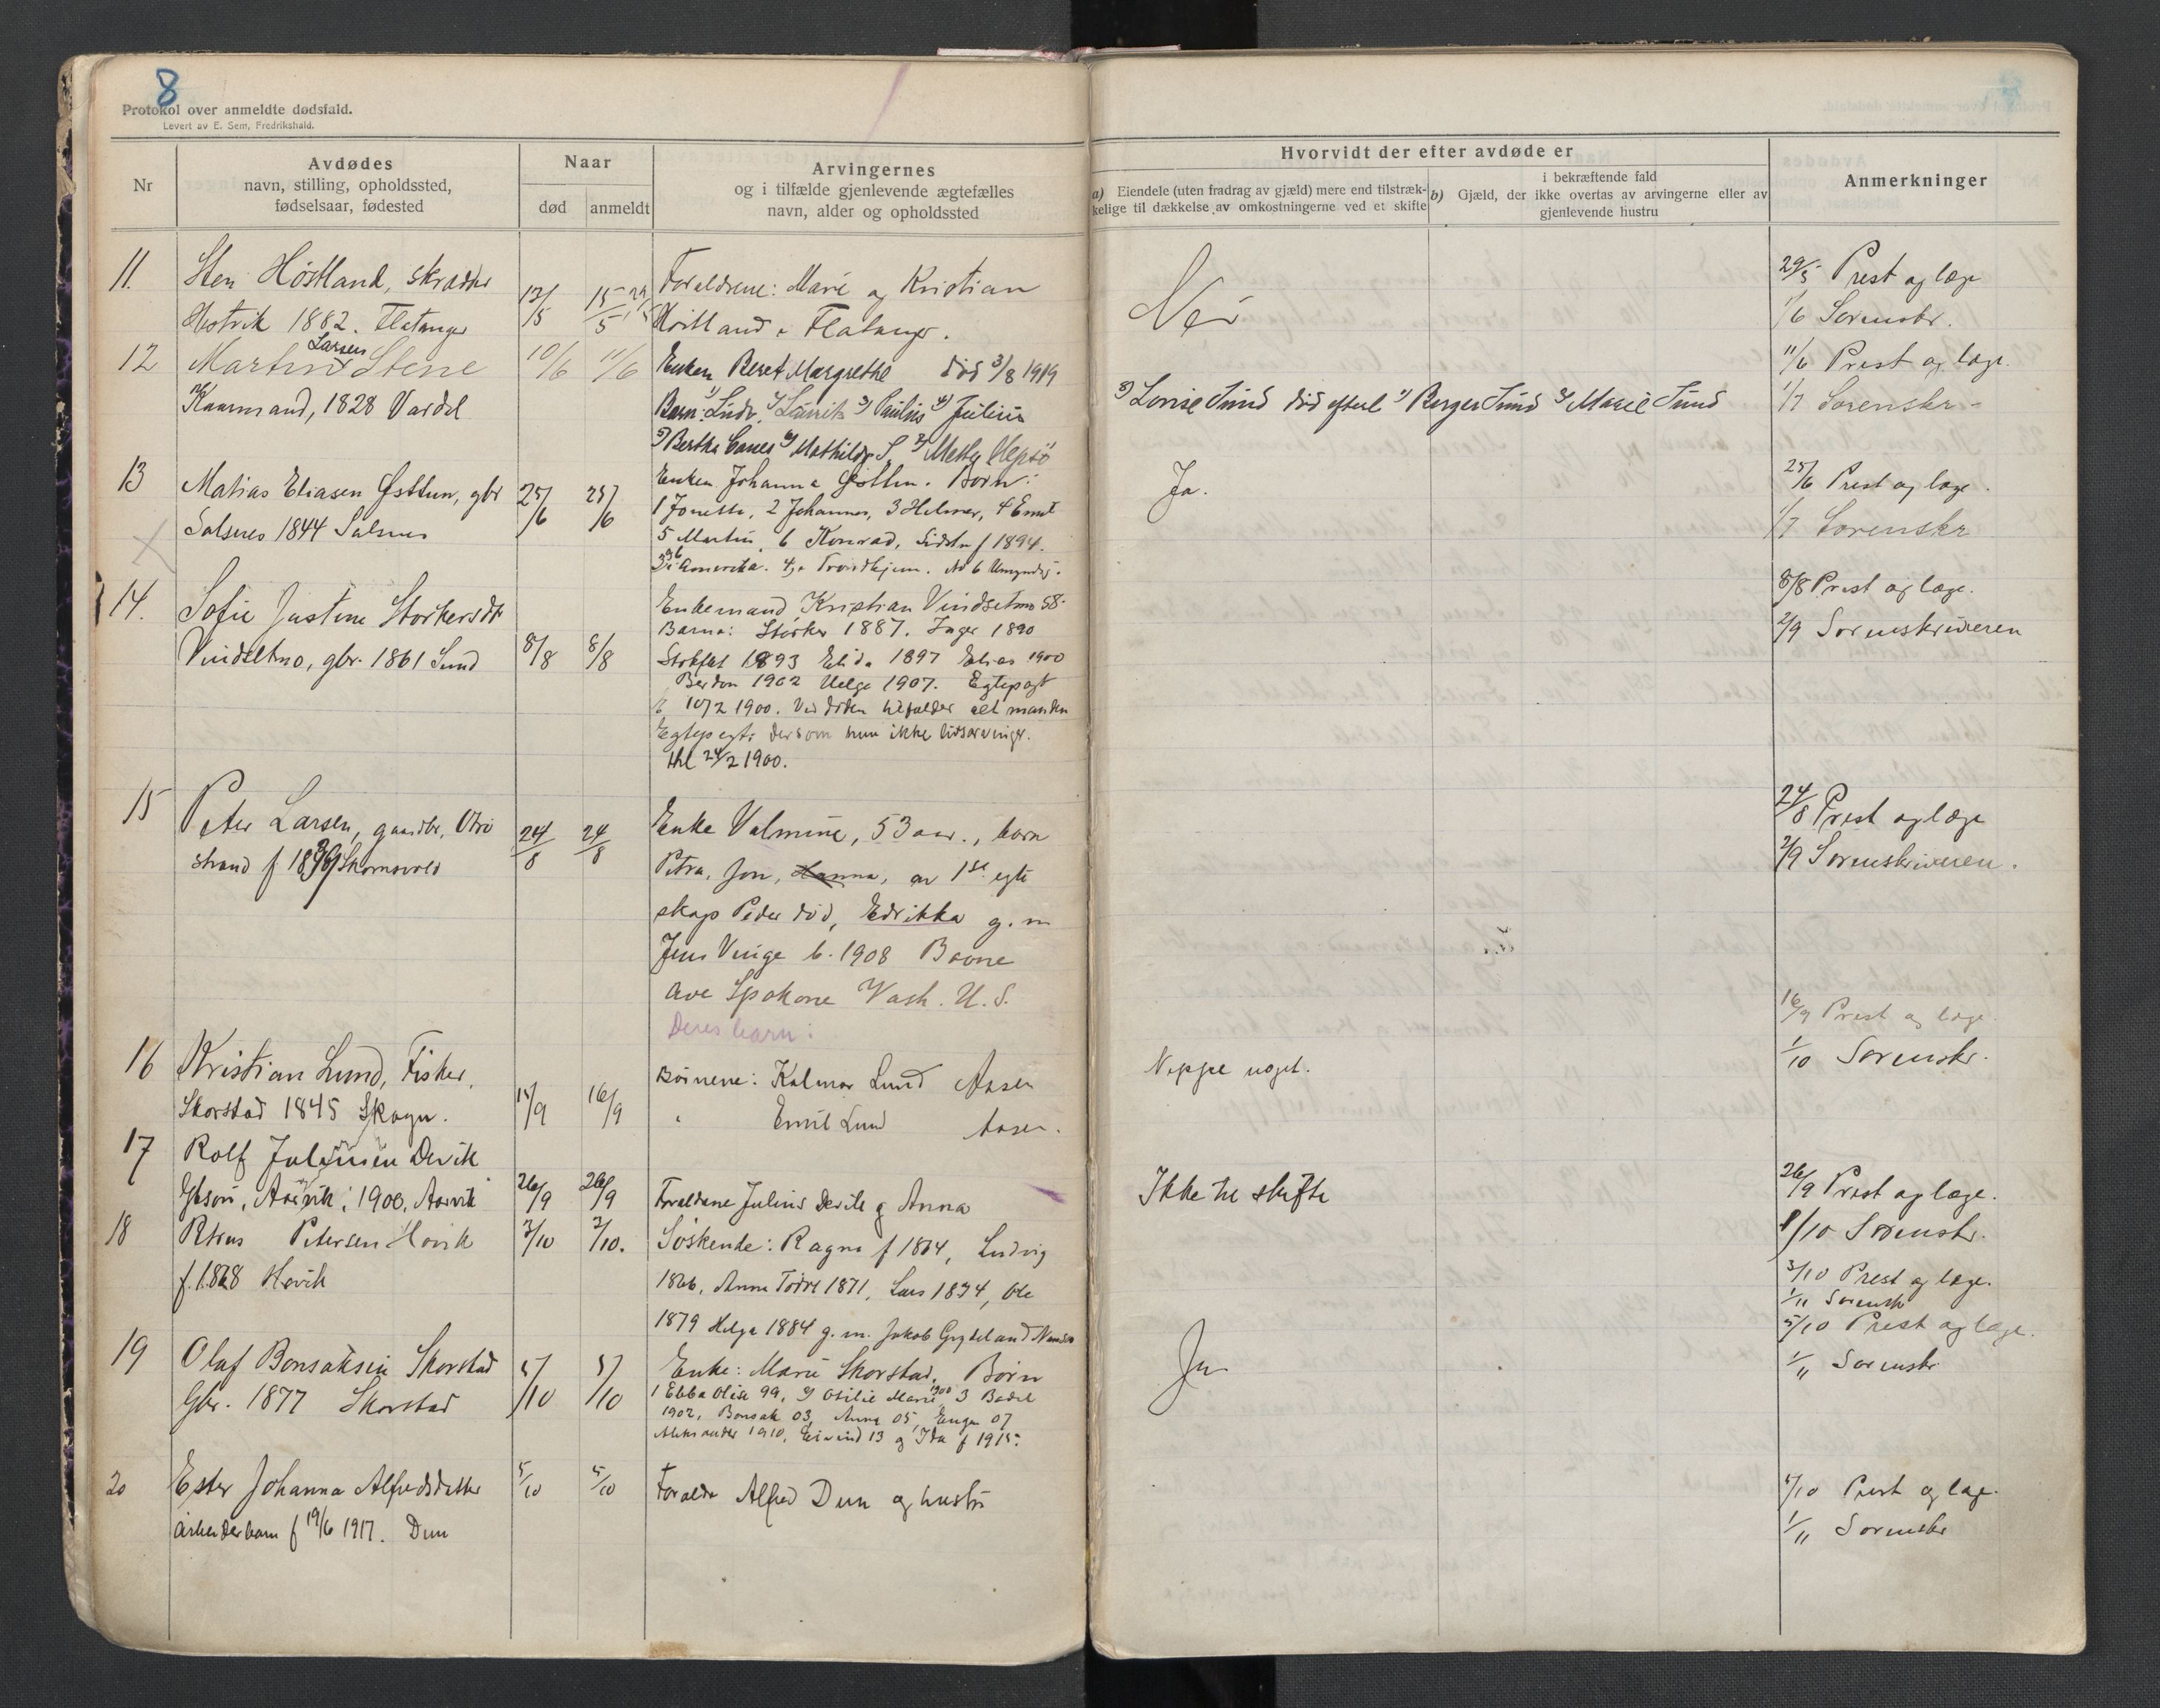 8
Protokol over anmeldte dødsfald.
Levert av E. Sem, Fredrikshald.
Nr
Avdødes
navn, stilling, opholdssted,
fødselsaar, fødested
Naar
død
anmeldt
Arvingernes
og i tilfælde gjenlevende ægtefælles
navn, alder og opholdssted
Hvorvidt der efter avdøde er
a) Eiendele (uten fradrag av gjæld) mere end tilstræk-
kelige til dækkelse av omkostningerne ved et skifte
i bekræftende fald
b) Gjæld, der ikke overtas av arvingerne eller av
gjenlevende hustru
Anmerkninger
11. Sten Høstland, skrædder
1882. Flatanger
13/5 15/5
Forældrene: Marie og Kristian
Høstland, Flatanger.
Nei
29/5 Prest og læge
1/6 Sorenskr.
12 Martin Larsen Stene
Kaarmand, 1828 Vardal
10/6 11/6
Enken Beret Margrethe død 3/8 1919
Barn: 1) Ludv. 2) Laurits 3) Paulius 4) Julius
5) Bertha 6) Mathilde S. 7) Mette
8) Lovise Sund død efterl 1) Berger Sund 2) Marie Sund
11/6 Prest og læge.
1/7 Sorenskr-
13 Matias Eliasen Østtun, gbr
Salsnes 1844 Salsnes
25/6 25/6
Enken Johanna Østtun. Børn:
1 Jonette, 2 Johannes, 3 Helmer, 4 Emil
5 Martin, 6 Konrad, Sidste f 1894.
i Amerika. 4 i Trondhjem. No 6 Umyndig.
Ja.
25/6 Prest og læge.
1/7 Sorenskr
14. Sofie Justine Storkersdt
Vindsetmo, gbr. 1861 Sund
8/8 8/8
Enkemand Kristian Vindsetmo 58.
Barna: Storker 1887. Inger 1890
1893 Elida 1897 Elias 1900
1902 Helge 1907. Egtepagt
10/2 1900. Ved døden tilfalder alt manden
Egtepagt dersom hun ikke livsarvinger.
thl 24/2 1900.
8/8 Prest og læge.
2/9 Sorenskriveren
15 Peter Larsen, gaardbr, Utvo
strand f 1839
24/8 24/8
Enke Valmine, 53 aar., barn
Petra, Jon, Hanna, av 1ste egte
skap Peder død, Edrikka g. m
Jens Vinge b. 1908 Boone
Ave Spokane Wash. U. S.
Deres barn:
24/8 Prest og læge
2/9 Sorenskriveren.
16 Kristian Lund, Fisker,
Skorstad 1845 Skogn.
15/9 16/9
Børnene: Kalmar Lund Aasen
" Emil Lund Aasen.
Neppe noget.
16/9 Prest og læge.
1/10 Sorenskr.
17 Rolf Juliussen Devik
Gbsøn, Aarvik, 1900, Aarvik
26/9 26/9
Forældrene Julius Devik og Anna
Ikke til skifte
26/9 Prest og læge.
1/10 Sorenskr.
18 Petrus Petersen Hovik
f. 1868 Hovik
2/10 3/10.
Søskende: Ragna f 1864, Ludvig
1866, Anna 1871, Lars 1874, Ole
1879 Helga 1884 g. m. Jakob Grydeland Namsos
3/10 Prest og læge.
1/11 Sorenskr
19 Olaf Bonsaksen Skorstad
Gbr. 1877 Skorstad
5/10 5/10
Enke: Marie Skorstad, Børn
1 Ebba Olise 99, 2) Otilie Marie 1900, 3 Bodil
1902, Bonsak 03, Anna 05, Eugen 07
Aleksander 1910, Eivind 13 og Ida f 1915.
Ja
5/10 Prest og læge.
1/11 Sorenskr
20 Ester Johanna Alfredsdatter
Arbeiderbarn f 19/6 1917. Dun
5/10 5/10
Forældre Alfred Dun og hustru
5/10 Prest og læge.
1/11 Sorenskr